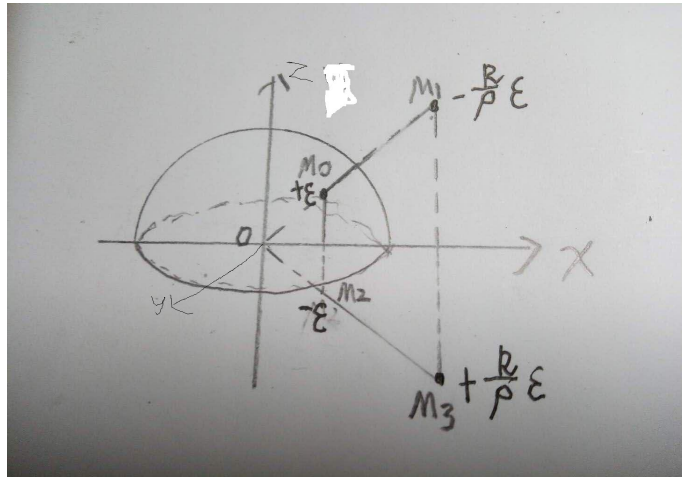 Z
M1 - R/ρ ε
M0
+ε
O
X
M2
y
-ε
M3 + R/ρ ε